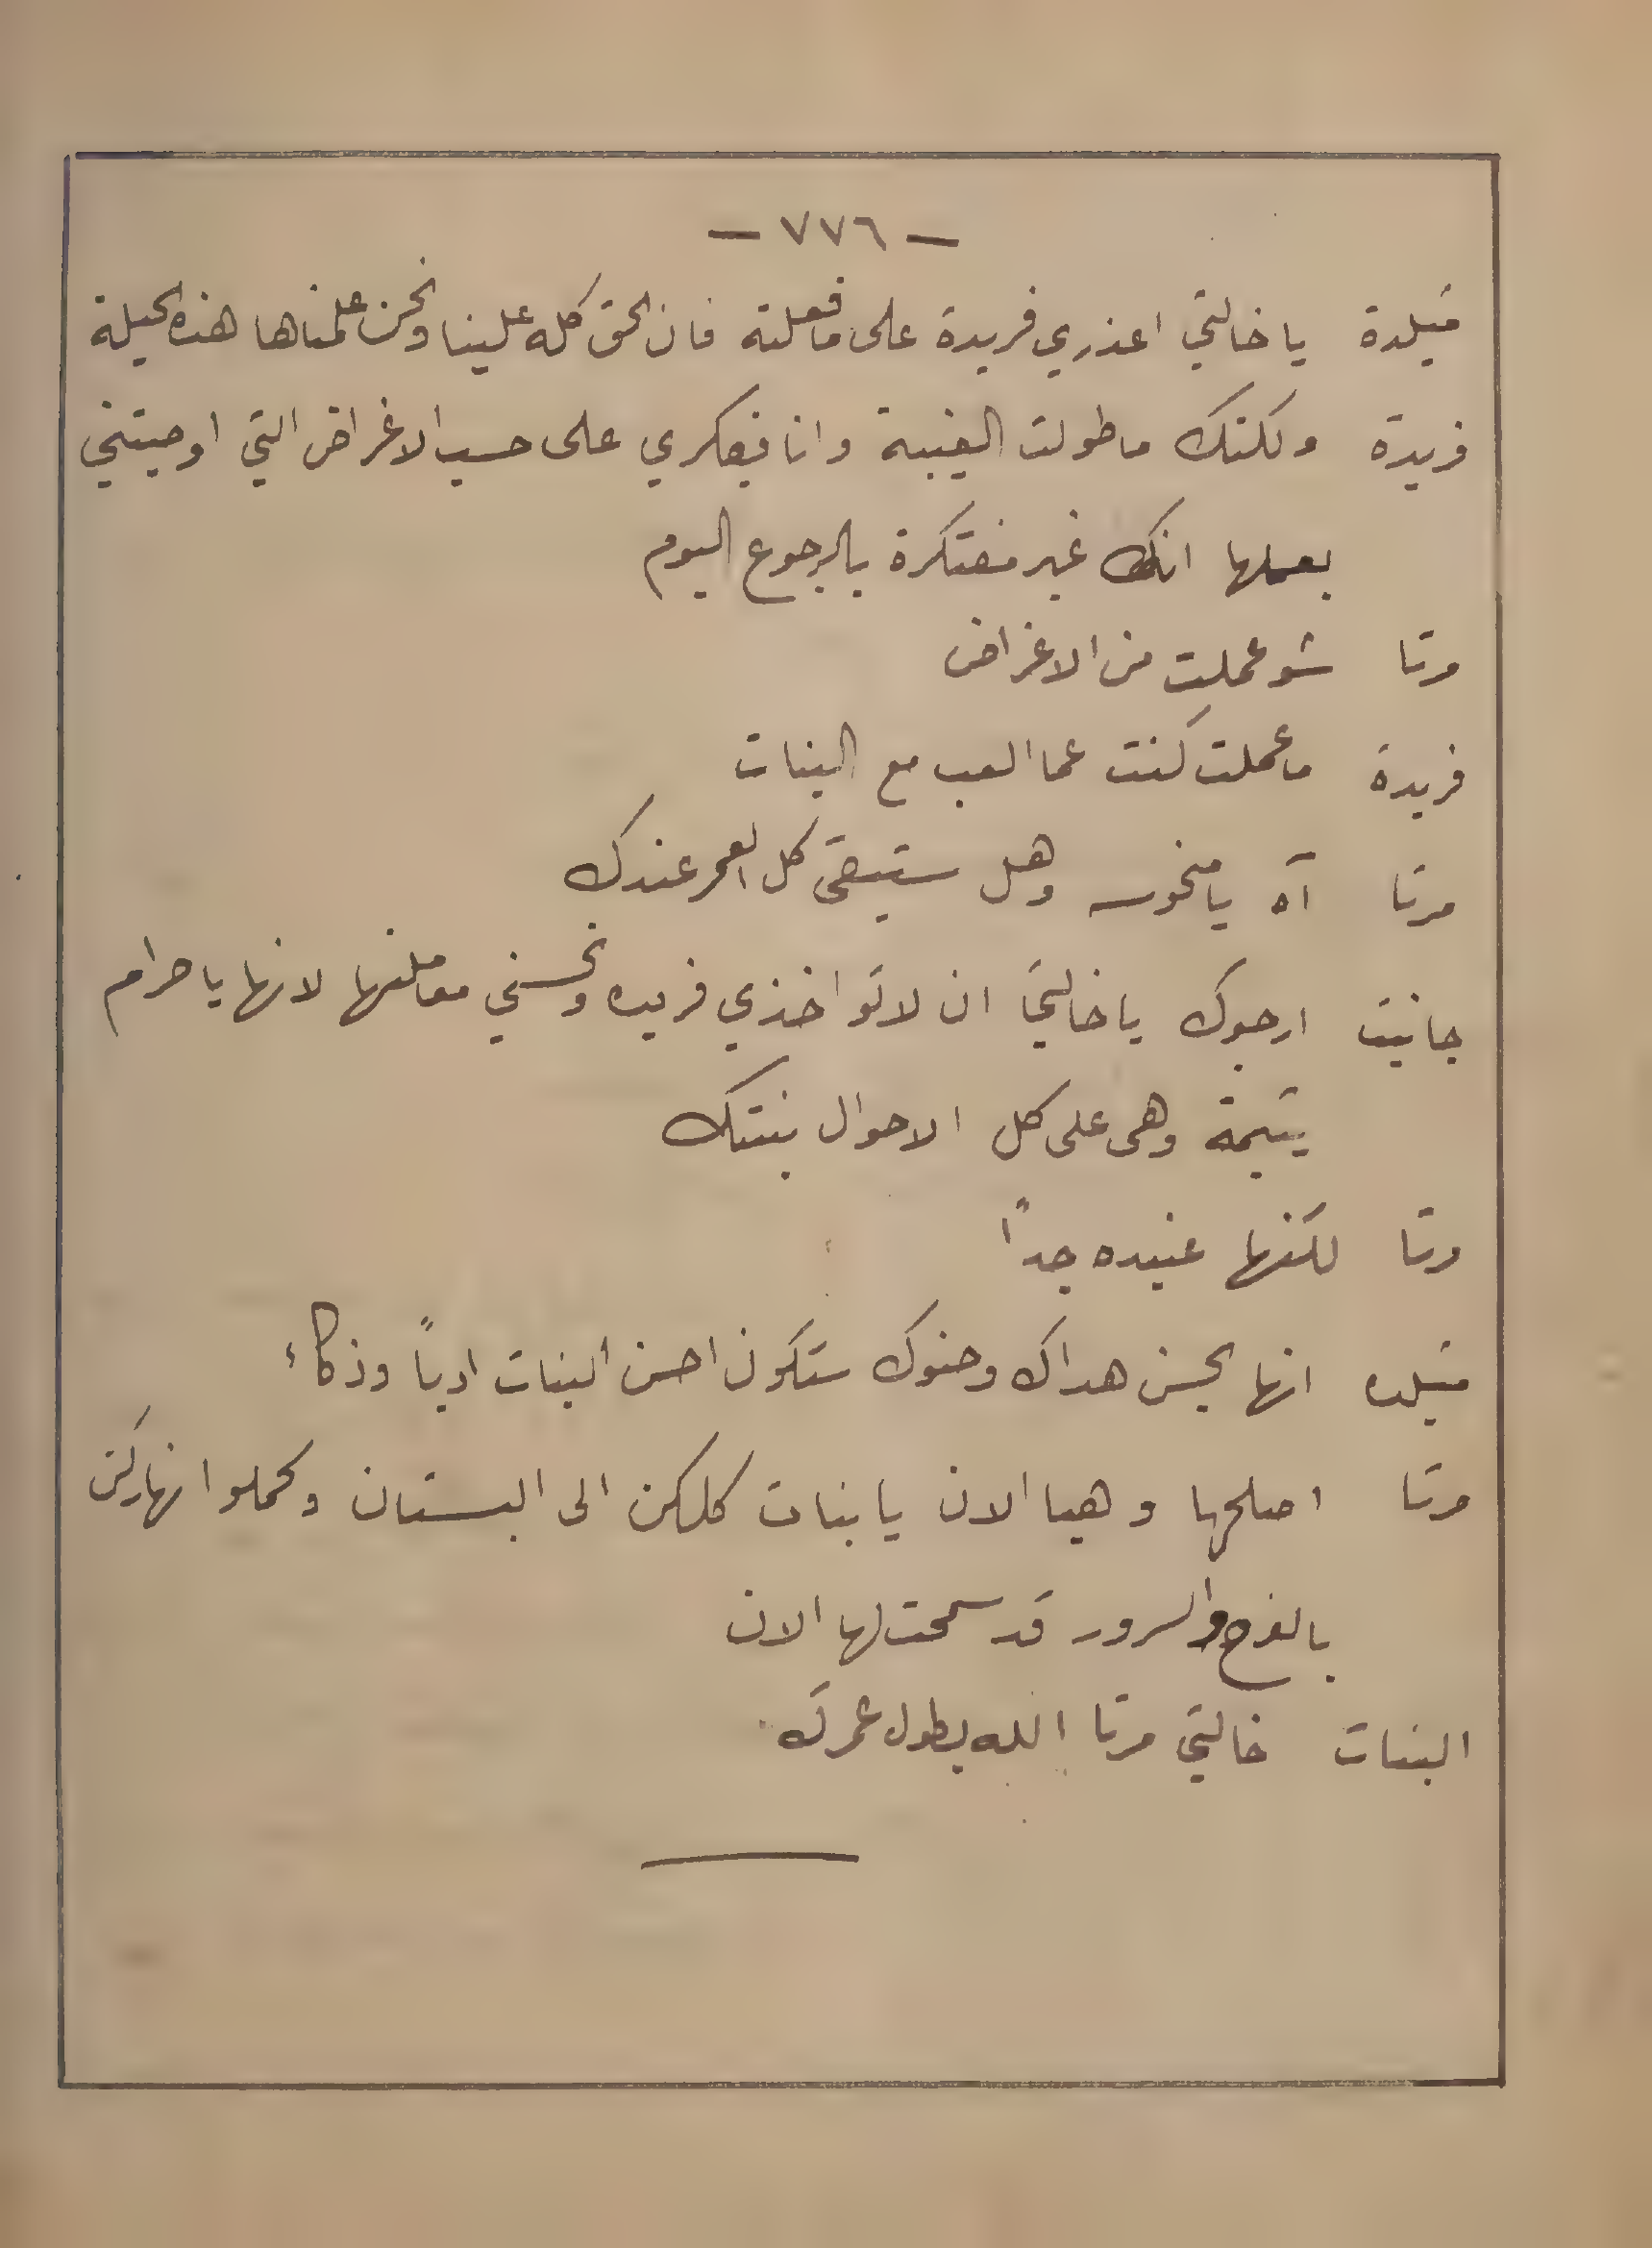 — ٧٧٦ —
متيلدة يا خالتي اعذري فريدة على ما فعلته فان الحق كله علينا ونحن علمناها هذه الحيلة
فريدة ولكنك ما طولت الغيبة وانا بفكري على حسب الاغراض التي اوصيتني
بعملها انك غير مفتكرة بالرجوع اليوم
مرتا شو عملت من الاغراض
فريدة ما عملت كنت عما العب مع البنات
مرتا آه يا منحوسه وهل ستبقى كل العمر عندك
جانيت ارجوك يا خالتي ان لا تواخذي فريده وتحسني معاملتها لانها يا حرام
يتيمة وهي على كل الاحوال بنتك
مرتا لكنها عنيده جداً
متيلده انها بحسن هداك وحنوك ستكون احسن البنات ادباً وذكاءً
مرتا اصلحها وهيا الان يا بنات كلكن الى البستان وكملوا نهاركن
بالفرح والسرور قد سمحت لها الان
البنات خالتي مرتا الله يطول عمرك